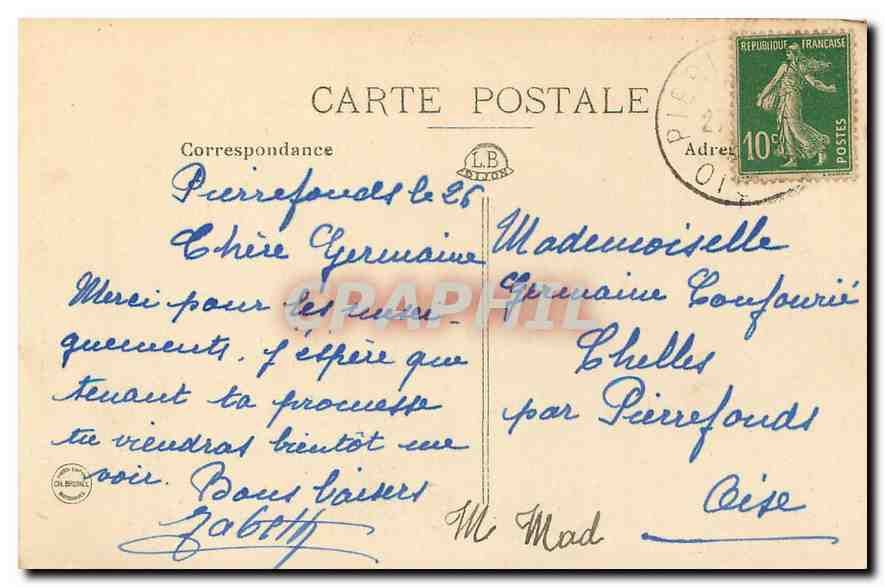 CARTE POSTALE
Correspondance
L.B
DIJON
Adre
REPUBLIQUE FRANÇAISE
10c
POSTES
PIER
27
OI
Pierrefonds le 26
Chère Germaine
Merci pour les rensei-
gnements. J'éspère que
tenant ta promesse
tu viendras bientôt me
voir. Bons baisers
Mademoiselle
Germaine Confourié
Chelles
par Pierrefonds
Oise
M Mad
CPAPHIL